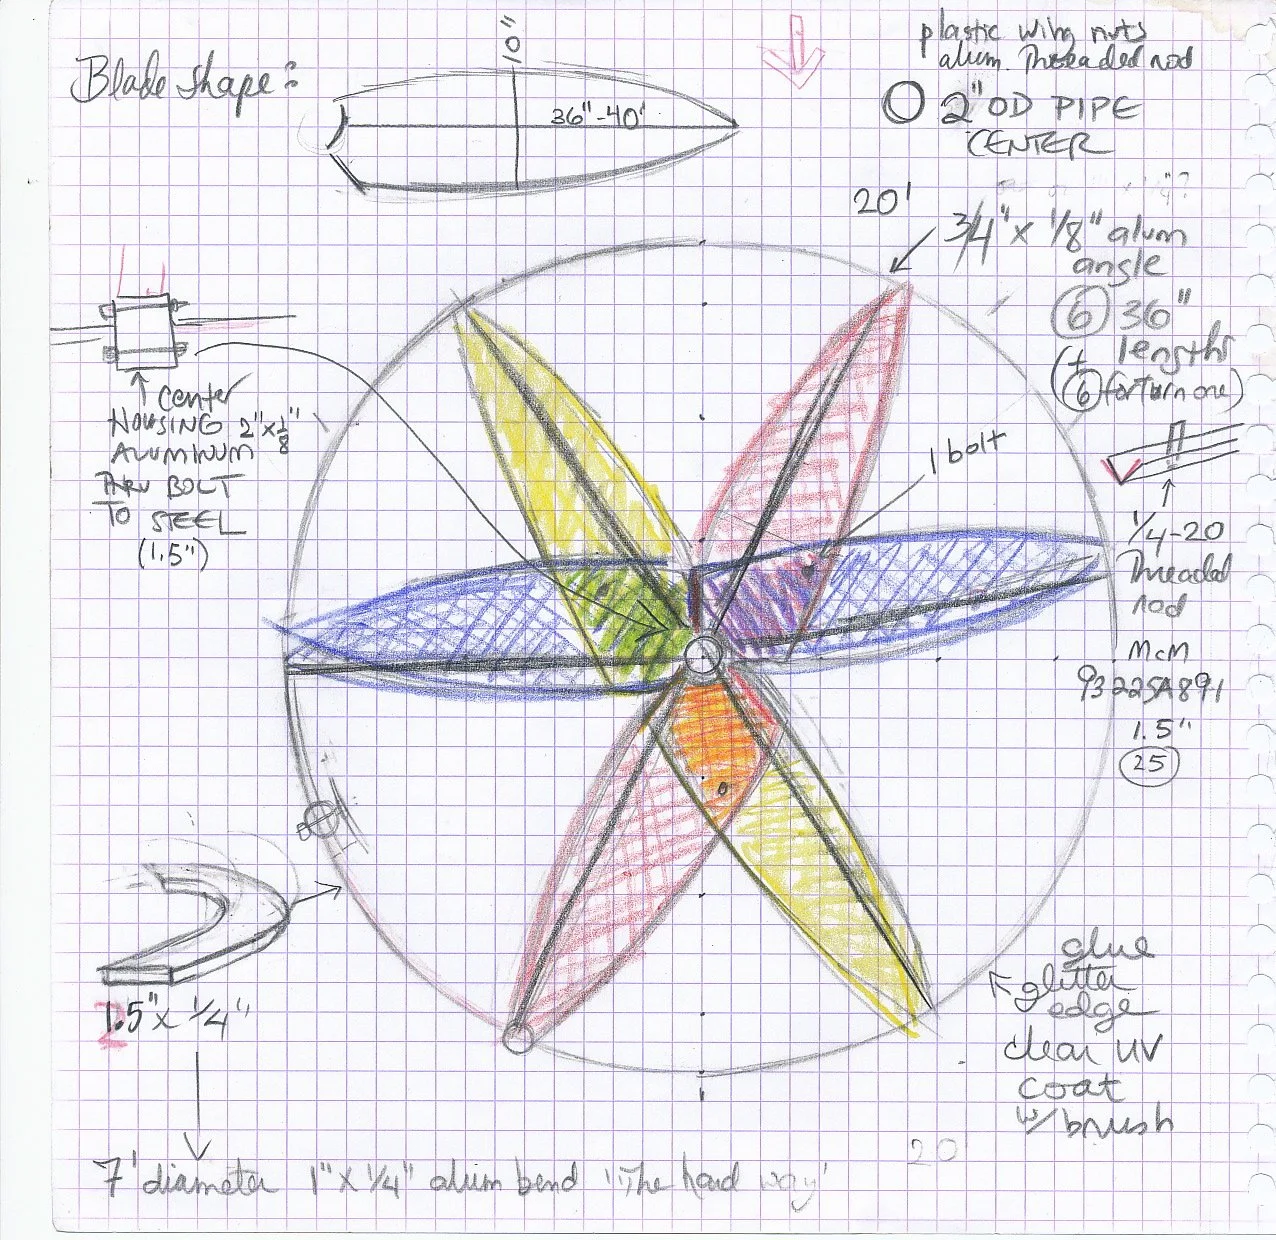 Blade shape:
10"
36"-40'
plastic wing nuts
alum. Threaded rod
2" OD PIPE
CENTER
20'
3/4" x 1/8" alum
angle
6 36"
lengths
(+
6 for turn one)
1 bolt
center
HOUSING 2" x 1/8"
ALUMINUM
THRU BOLT
TO STEEL
(1.5")
1/4-20
Threaded
rod
McM
93225A891
1.5"
25
1.5" x 1/4"
glue
glitter
edge
clear UV
coat
w/ brush
20
7' diameter 1" x 1/4" alum bend "The hard way"